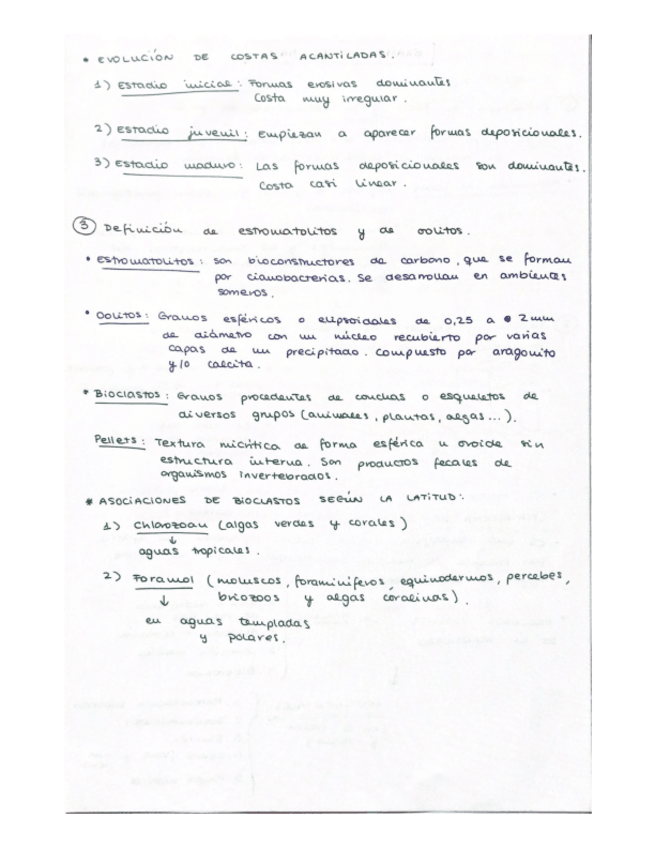 * EVOLUCIÓN DE COSTAS ACANTILADAS.
1) Estadio inicial: Formas erosivas dominantes
Costa muy irregular.
2) Estadio juvenil: Empiezan a aparecer formas deposicionales.
3) Estadio maduro: Las formas deposicionales son dominantes.
Costa casi linear.
③ Definición de estromatolitos y de oolitos.
• Estromatolitos: son bioconstructores de carbono, que se forman
por cianobacterias. Se desarrollan en ambientes
someros.
• Oolitos: Granos esféricos o elipsoidales de 0,25 a 2mm
de diámetro con un núcleo recubierto por varias
capas de un precipitado. Compuesto por aragonito
y/o calcita.
• Bioclastos: Granos procedentes de conchas o esqueletos de
diversos grupos (animales, plantas, algas...).
Pellets: Textura micrítica de forma esférica u ovoide sin
estructura interna. Son productos fecales de
organismos invertebrados.
* ASOCIACIONES DE BIOCLASTOS SEGÚN LA LATITUD:
1) Chlorozoan (algas verdes y corales)
↓
aguas tropicales.
2) Foramol (moluscos, foraminíferos, equinodermos, percebes,
↓ briozoos y algas coralinas).
en aguas templadas
y polares.